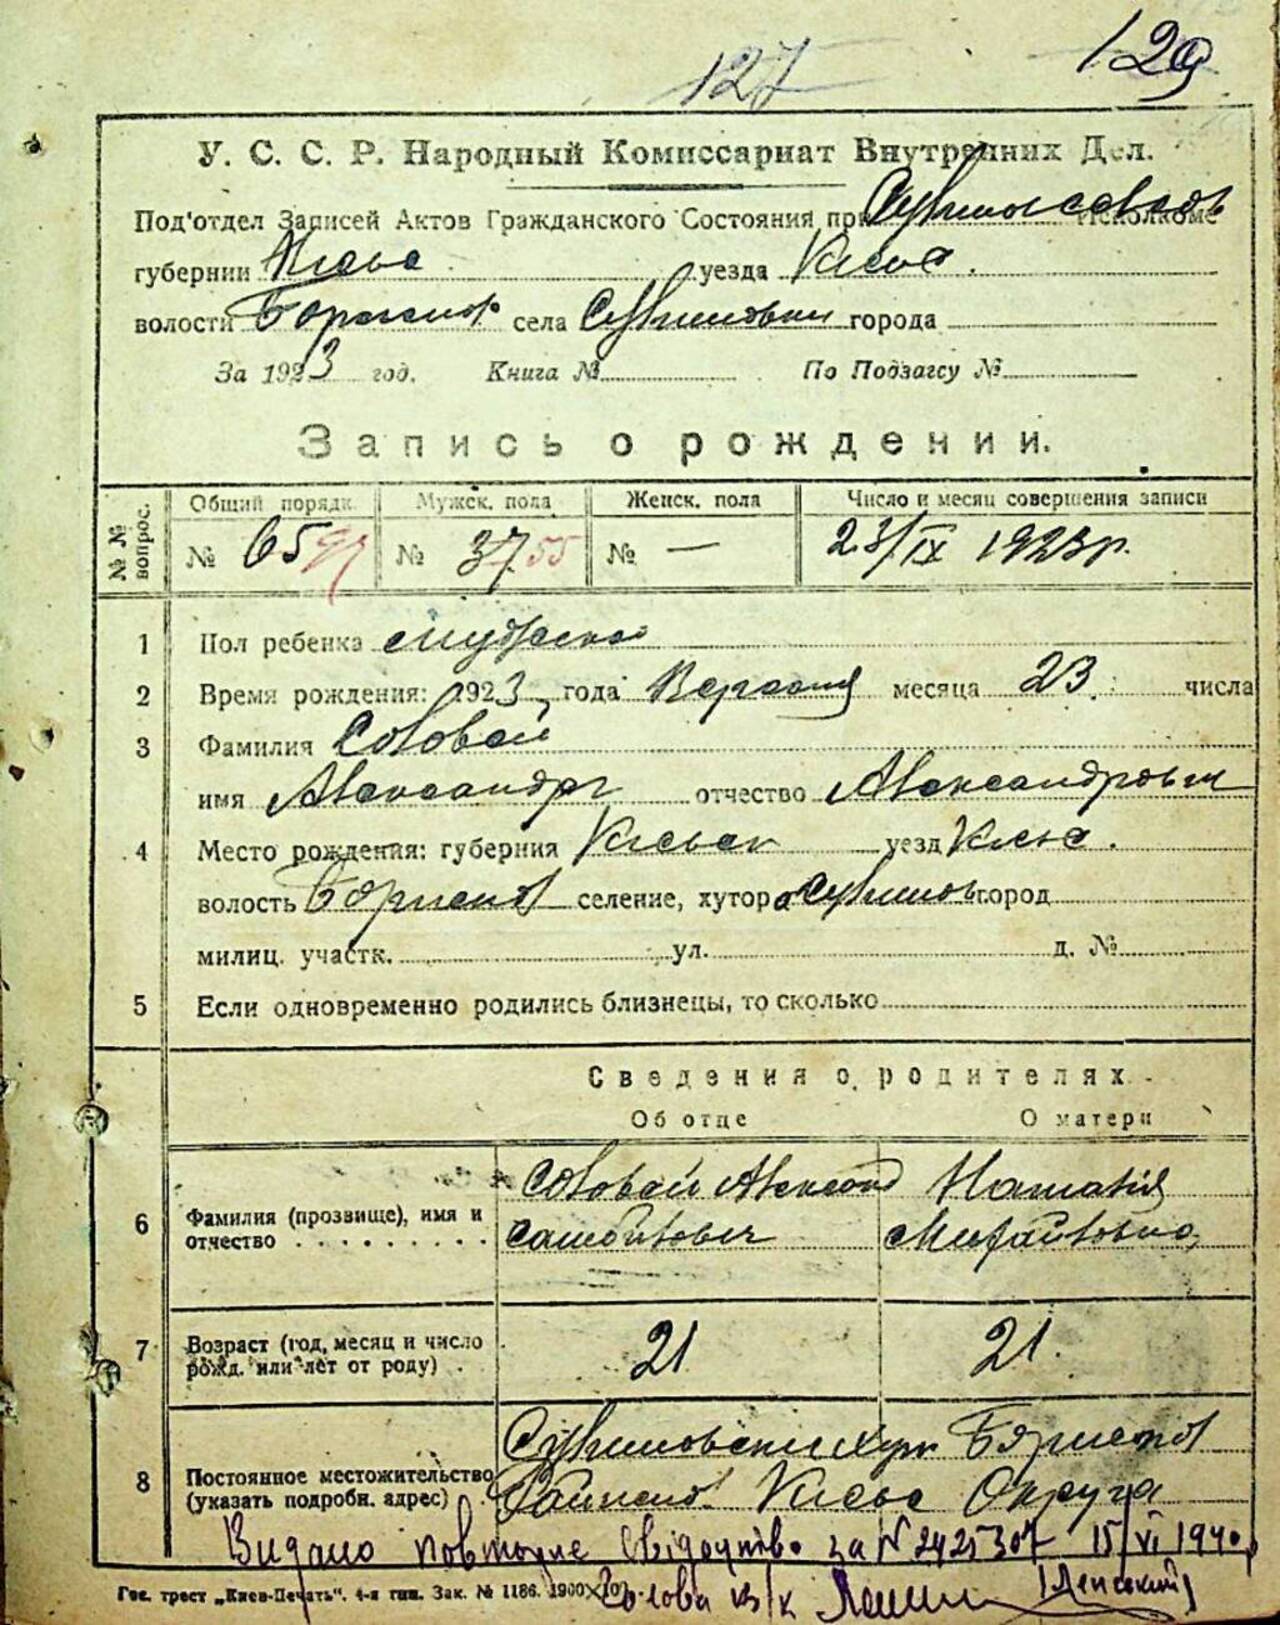 127 129
У. С. С. Р. Народный Комиссариат Внутренних Дел.
Под'отдел Записей Актов Гражданского Состояния при исполкоме
губернии Киевс уезда Киевс.
волости села города
За 1923 год. Книга № По Подзагсу №
Запись о рождении.
№№ вопрос. Общий порядк. Мужск. пола Женск. пола Число и месяц совершения записи
№ 65 97 № 37 55 № — 23/IX 1923 р.
1 Пол ребенка мужеска
2 Время рождения: 1923 года Вересня месяца 23 числа
3 Фамилия Соловей
имя Александр отчество Александрович
4 Место рождения: губерния Киевск уезд Киевс.
волость селение, хутор город
милиц. участк. ул. д. №
5 Если одновременно родились близнецы, то сколько
Сведения о родителях
Об отце О матери
6 Фамилия (прозвище), имя и отчество Соловей Александ Наталия
Самойлович Михайловна
7 Возраст (год, месяц и число рожд. или лет от роду) 21 21.
8 Постоянное местожительство (указать подробн. адрес) хут
Киевс Округа
Видано повторне свідоцтво за № 2425307 15/VI 1940р
Гос. трест „Киев-Печать“. 4-я тип. Зак. № 1186. 1900×10 Голова в/к